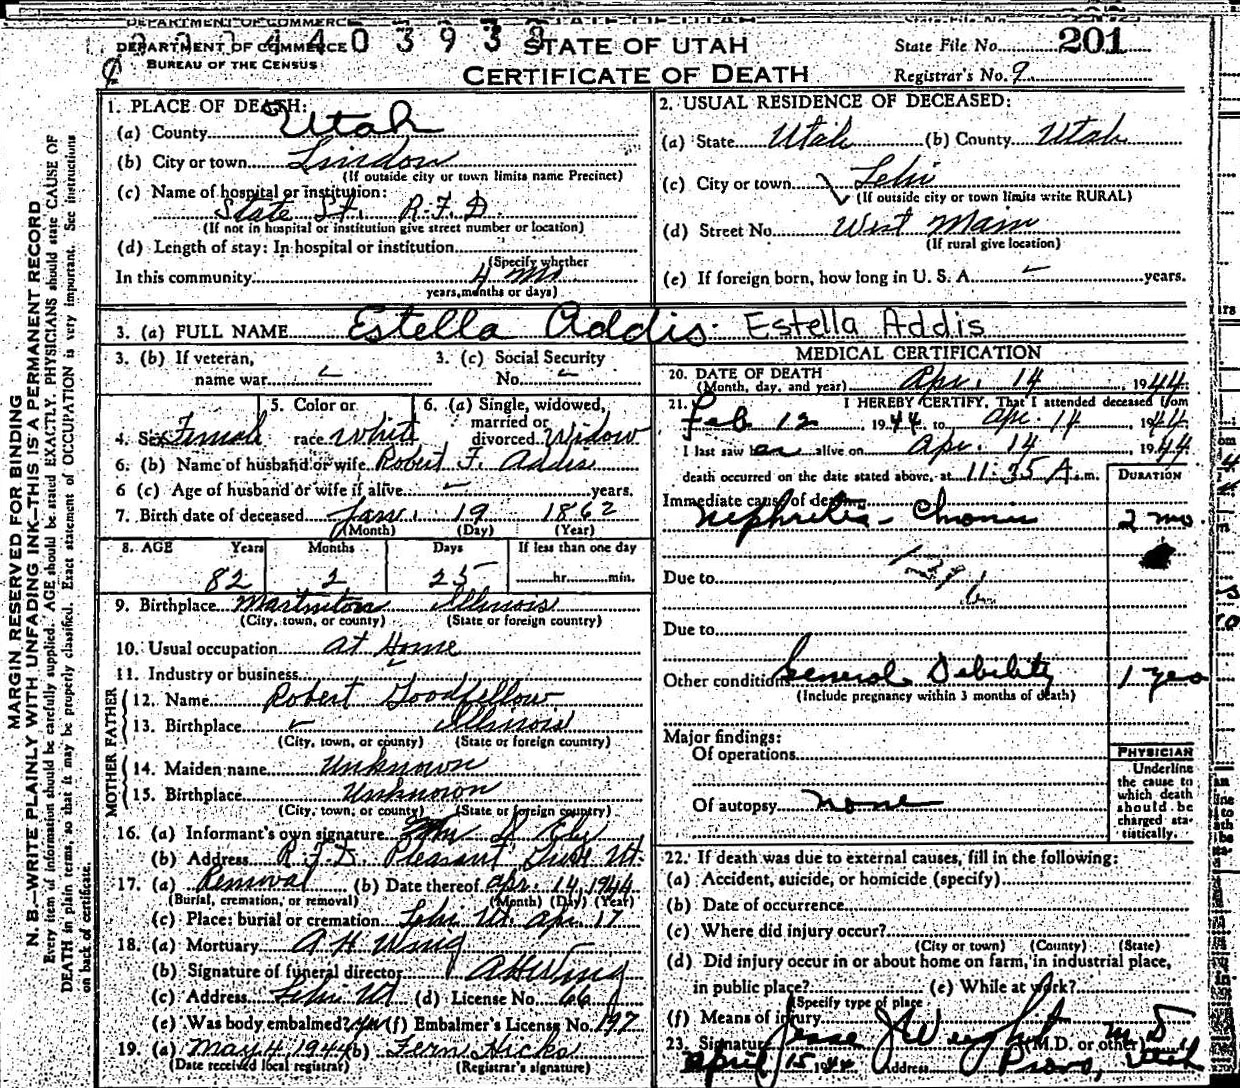 DEPARTMENT OF COMMERCE
BUREAU OF THE CENSUS
STATE OF UTAH
CERTIFICATE OF DEATH
State File No. 201
Registrar's No. 9
MARGIN RESERVED FOR BINDING
N. B.—WRITE PLAINLY WITH UNFADING INK—THIS IS A PERMANENT RECORD
Every item of information should be carefully supplied. AGE should be stated EXACTLY. PHYSICIANS should state CAUSE OF
DEATH in plain terms, so that it may be properly classified. Exact statement of OCCUPATION is very important. See instructions
on back of certificate.
1. PLACE OF DEATH:
(a) County Utah
(b) City or town Lindon
(If outside city or town limits name Precinct)
(c) Name of hospital or institution:
State St. R.F.D.
(If not in hospital or institution give street number or location)
(d) Length of stay: In hospital or institution
(Specify whether
In this community 4 mo
years, months or days)
2. USUAL RESIDENCE OF DECEASED:
(a) State Utah (b) County Utah
(c) City or town Lehi
(If outside city or town limits write RURAL)
(d) Street No. West Main
(If rural give location)
(e) If foreign born, how long in U. S. A. years.
3. (a) FULL NAME Estella Addis Estella Addis
3. (b) If veteran,
name war
3. (c) Social Security
No.
4. Sex Female
5. Color or
race White
6. (a) Single, widowed,
married or
divorced Widow
6. (b) Name of husband or wife Robert F. Addis
6 (c) Age of husband or wife if alive years.
7. Birth date of deceased Jan. 19 1862
(Month) (Day) (Year)
8. AGE Years Months Days If less than one day
82 2 25 hr. min.
9. Birthplace Martinton Illinois
(City, town, or county) (State or foreign country)
10. Usual occupation at Home
11. Industry or business
FATHER
12. Name Robert Goodfellow
13. Birthplace Illinois
(City, town, or county) (State or foreign country)
MOTHER
14. Maiden name Unknown
15. Birthplace Unknown
(City, town, or county) (State or foreign country)
16. (a) Informant's own signature
(b) Address R.F.D. Pleasant Grove Ut.
17. (a) Removal (b) Date thereof Apr. 14, 1944
(Burial, cremation, or removal) (Month) (Day) (Year)
(c) Place: burial or cremation Lehi Ut. Apr 17
18. (a) Mortuary A H Wing
(b) Signature of funeral director A H Wing
(c) Address Lehi Ut (d) License No. 66
(e) Was body embalmed? yes (f) Embalmer's License No. 197
19. (a) May 4, 1944 (b) Fern Hicks
(Date received local registrar) (Registrar's signature)
MEDICAL CERTIFICATION
20. DATE OF DEATH
(Month, day, and year) Apr. 14 1944
21. I HEREBY CERTIFY, That I attended deceased from
Feb 12 1944 to Apr. 14 1944
I last saw her alive on Apr. 14 1944
death occurred on the date stated above, at 11:35 A.m.
DURATION
Immediate cause of death
Nephritis - Chronic 2 mo
Due to
Due to
Other conditions General Debility 1 yeo
(Include pregnancy within 3 months of death)
Major findings:
Of operations
Of autopsy none
PHYSICIAN
Underline
the cause to
which death
should be
charged sta-
tistically.
22. If death was due to external causes, fill in the following:
(a) Accident, suicide, or homicide (specify)
(b) Date of occurrence
(c) Where did injury occur?
(City or town) (County) (State)
(d) Did injury occur in or about home on farm, in industrial place,
in public place? (e) While at work?
(Specify type of place
(f) Means of injury
23. Signature Jesse J Weight M D
(M.D. or other)
April 15 1944 Address Provo, Utah